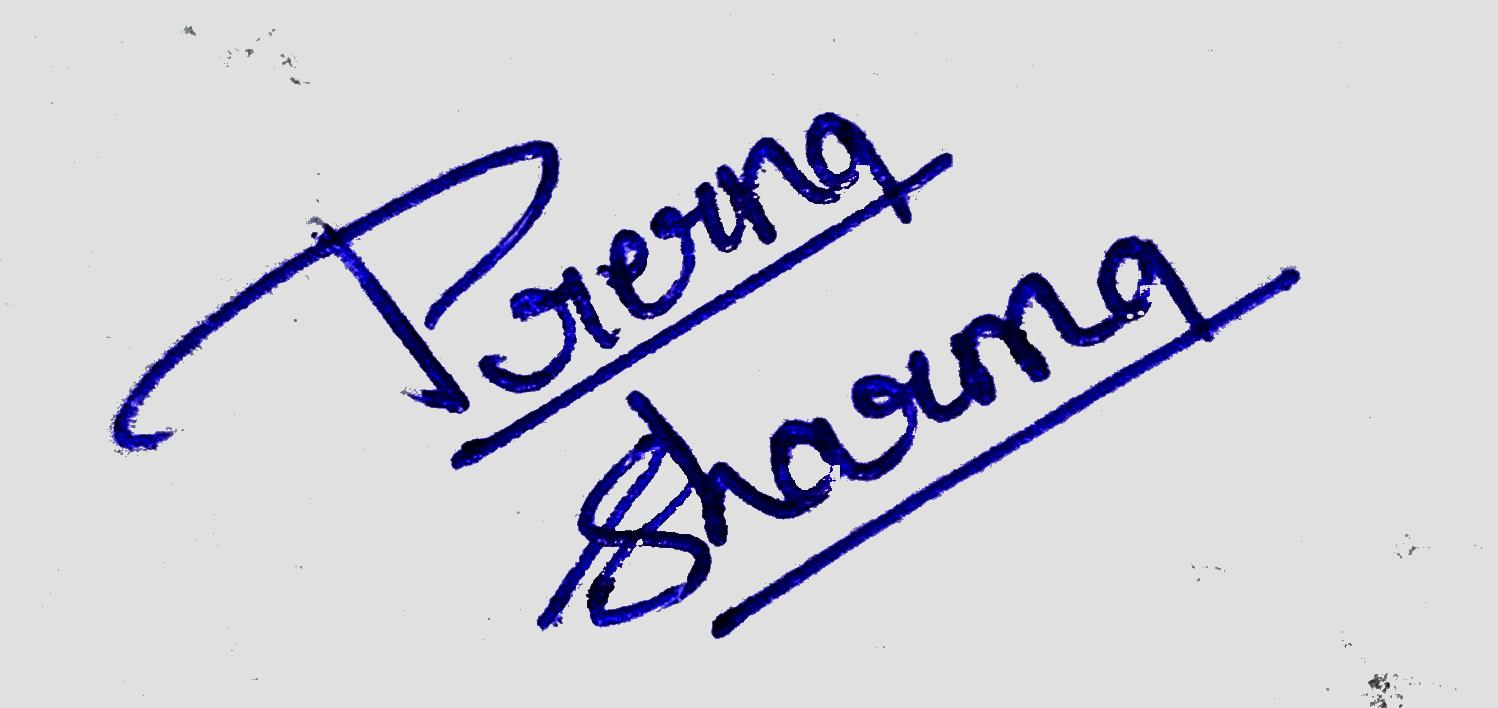 Prerna
Sharma